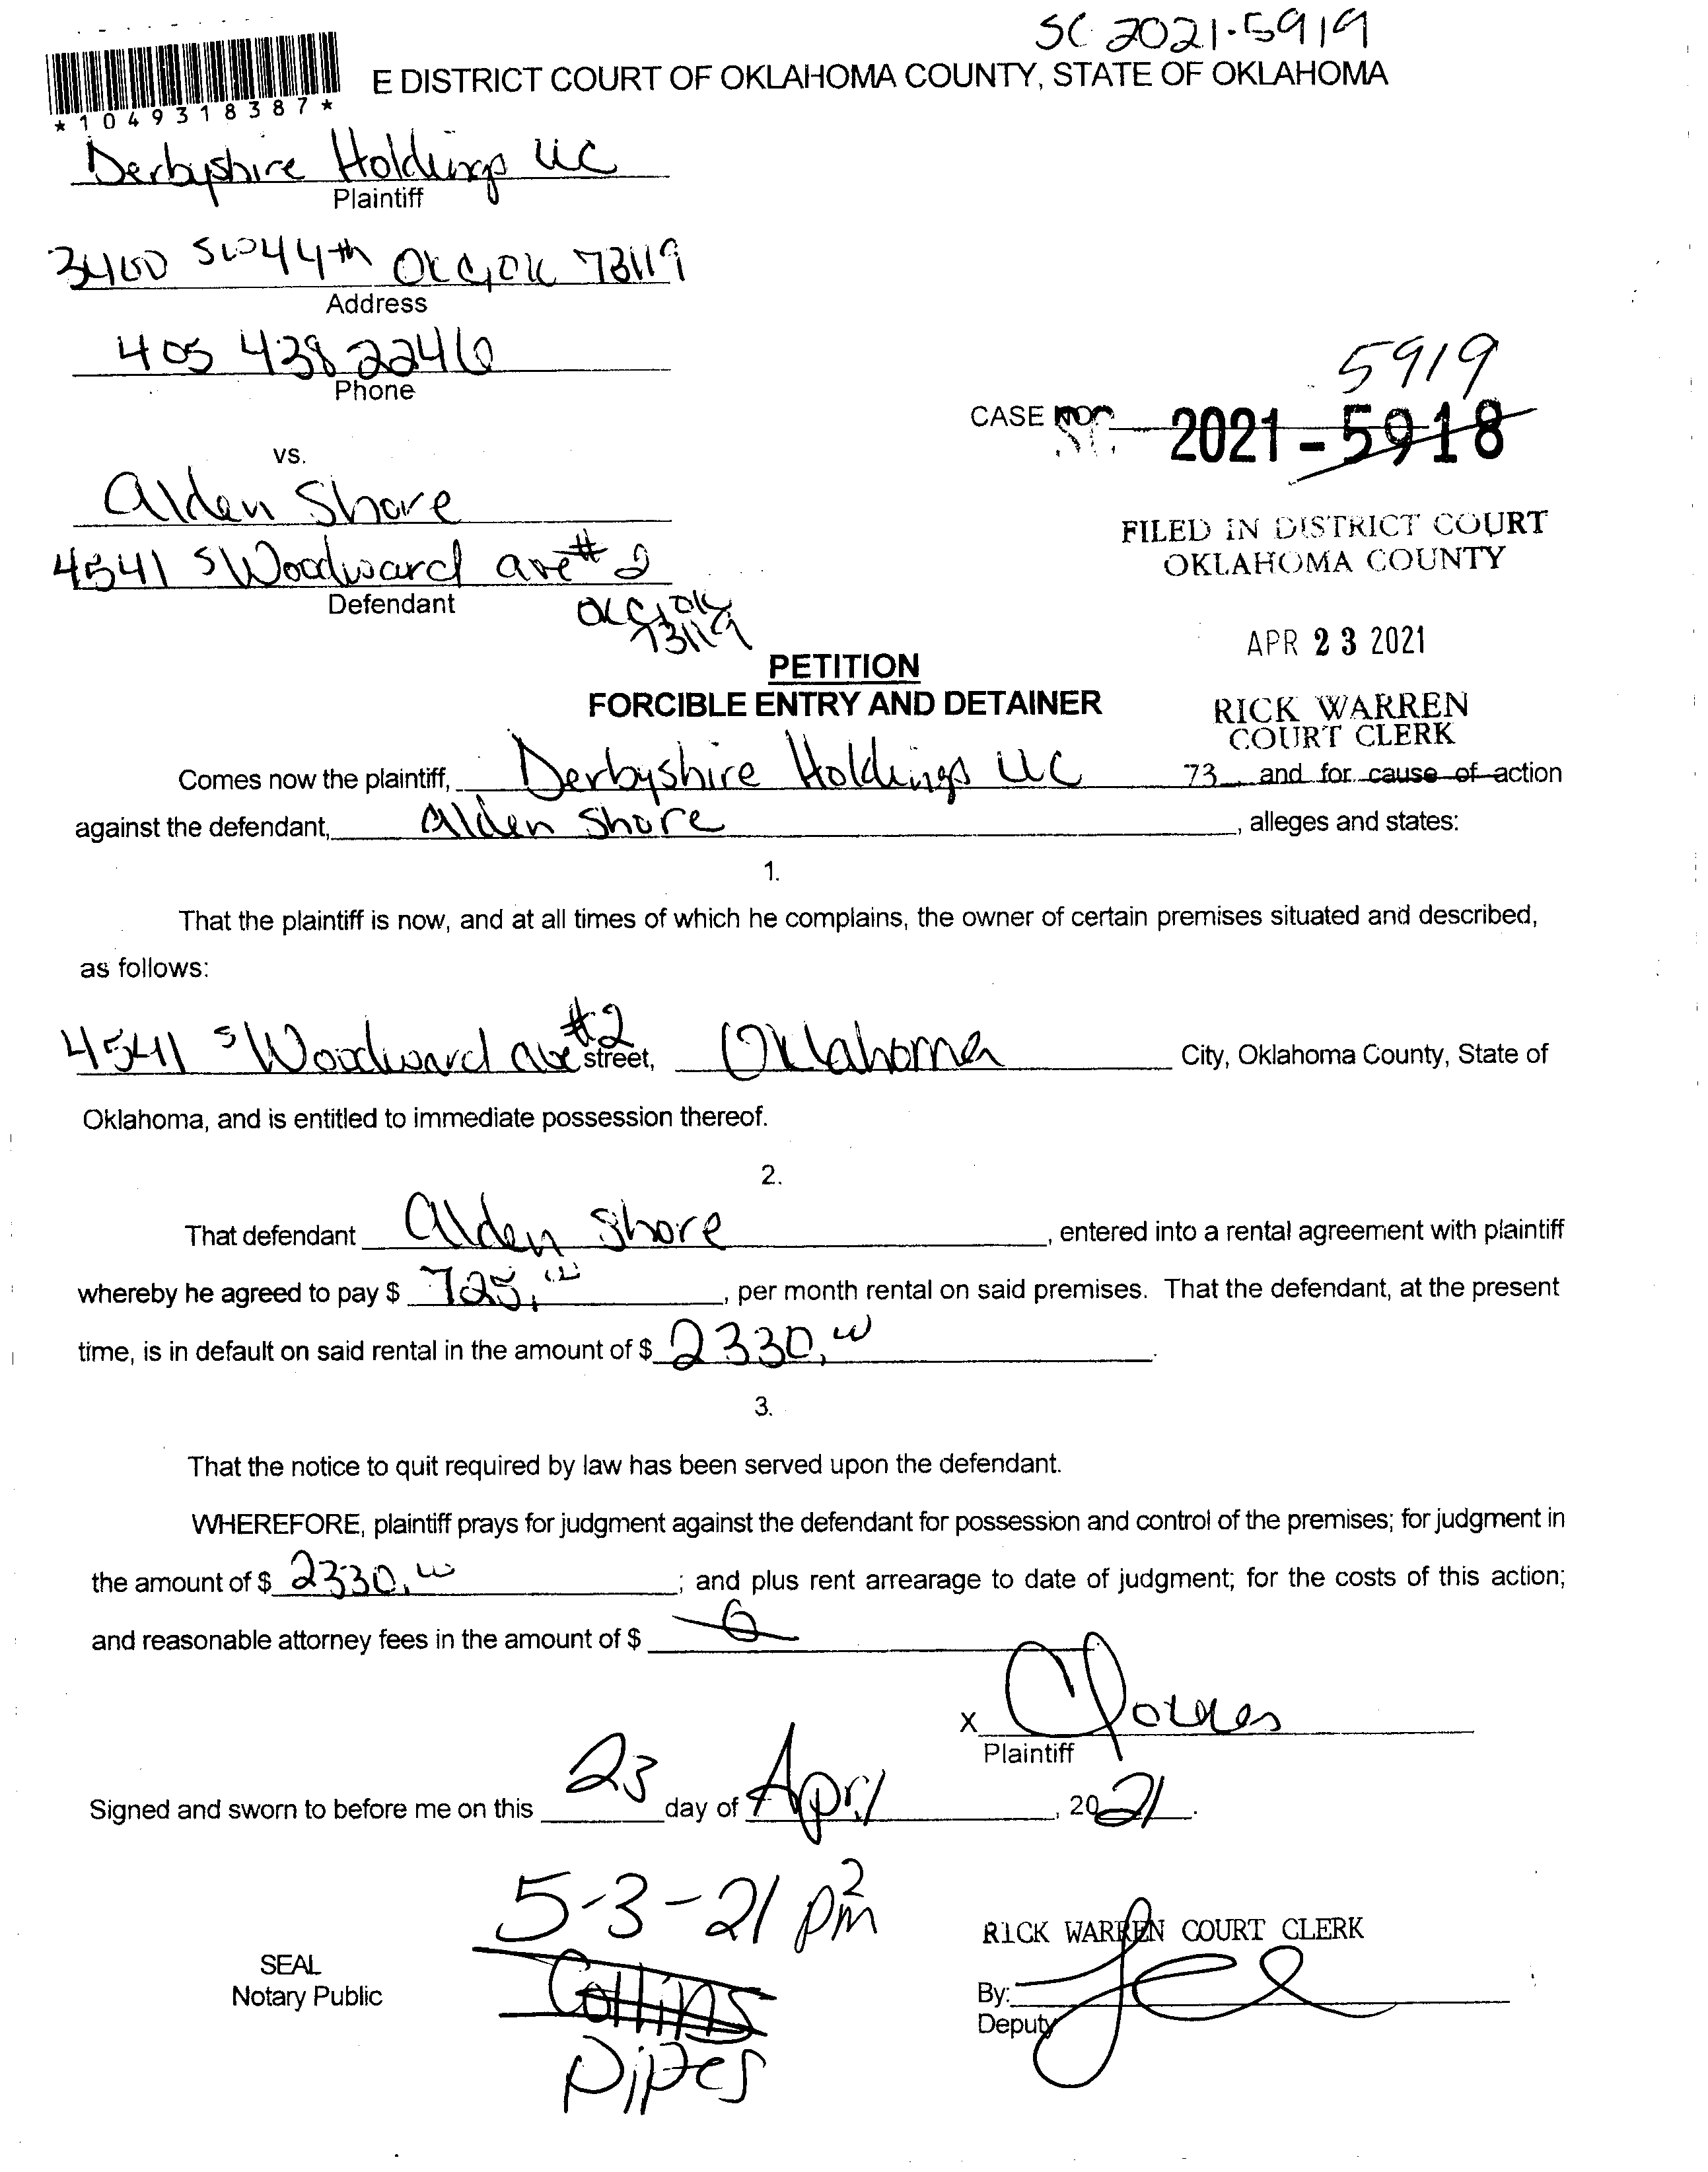 SC 2021-5919
E DISTRICT COURT OF OKLAHOMA COUNTY, STATE OF OKLAHOMA
*1049318387*
Derbyshire Holdings LLC
Plaintiff
3400 SW 44th OKC, OK 73119
Address
405 438 2246
Phone
5919
CASE NO. SC 2021-5918
vs.
Alden Shore
4541 S Woodward ave #2
Defendant
OKC, OK
73119
FILED IN DISTRICT COURT
OKLAHOMA COUNTY
APR 23 2021
RICK WARREN
COURT CLERK
PETITION
FORCIBLE ENTRY AND DETAINER
Comes now the plaintiff, Derbyshire Holdings LLC 73 and for cause of action
against the defendant, Alden Shore, alleges and states:
1.
That the plaintiff is now, and at all times of which he complains, the owner of certain premises situated and described,
as follows:
4541 S Woodward ave #2 street, Oklahoma City, Oklahoma County, State of
Oklahoma, and is entitled to immediate possession thereof.
2.
That defendant Alden Shore, entered into a rental agreement with plaintiff
whereby he agreed to pay $ 725.00, per month rental on said premises. That the defendant, at the present
time, is in default on said rental in the amount of $ 2330.00.
3.
That the notice to quit required by law has been served upon the defendant.
WHEREFORE, plaintiff prays for judgment against the defendant for possession and control of the premises; for judgment in
the amount of $ 2330.00; and plus rent arrearage to date of judgment; for the costs of this action;
and reasonable attorney fees in the amount of $ 0
X
Plaintiff
Signed and sworn to before me on this 23 day of April, 2021.
5-3-21 2 pm
SEAL
Notary Public
Collins
Pipes
RICK WARREN COURT CLERK
By:
Deputy